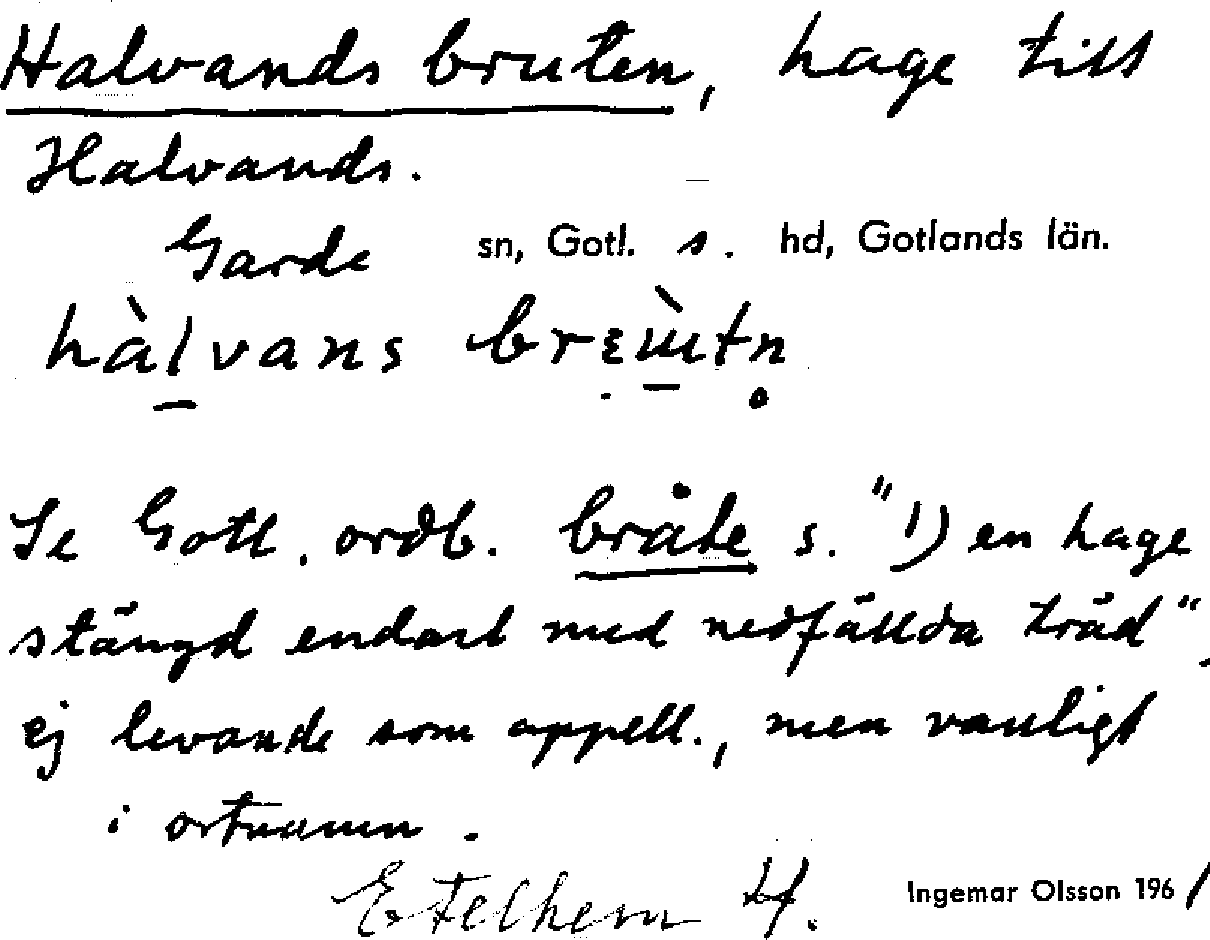 Halvands bruten, hage till
Halvands.
Garde sn, Gotl. s. hd, Gotlands län.
hàlvans
Se Gotl. ordb. bråte s. "1) en hage
stängd endast med nedfällda träd",
ej levande som appell., men vanligt
i ortnamn.
Etelhem 4. Ingemar Olsson 1961